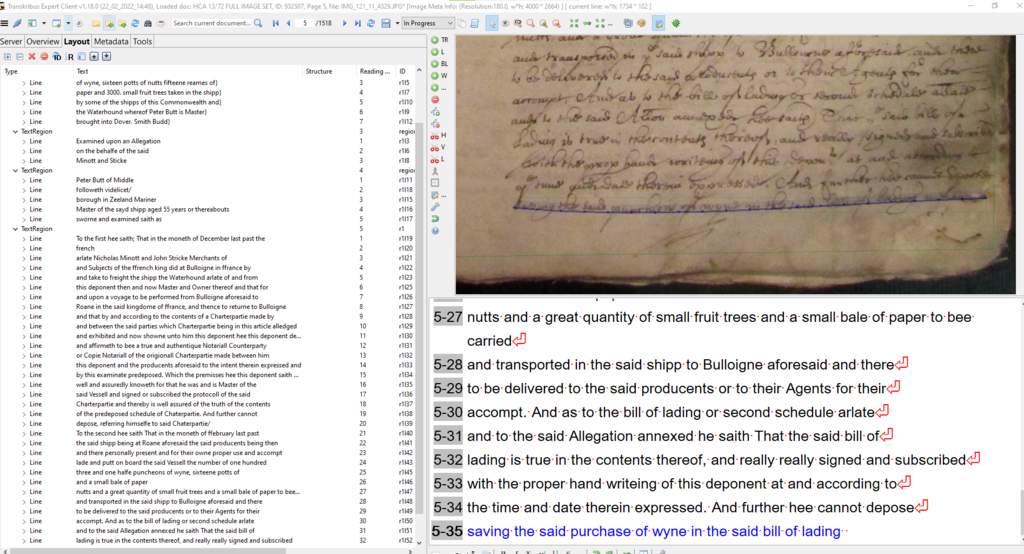 Transkribus Expert Client v1.18.0 (22_02_2022_14:48), Loaded doc: HCA 13/72 FULL IMAGE SET, ID: 932507, Page 5, file: IMG_121_11_4329.JPG* [Image Meta Info: (Resolution:180.0, w*h: 4000 * 2664) ] [ current line: w*h: 1734 * 102 ]
Search current document...
5 /1518
In Progress
Server Overview Layout Metadata Tools
Type Text Structure Reading ... ID
Line of wyne, sixteen potts of nutts fifteene reames of] 3 r1l5
Line paper and 3000. small fruit trees taken in the shipp] 4 r1l7
Line by some of the shipps of this Commonwealth and] 5 r1l10
Line the Waterhound whereof Peter Butt is Master] 6 r1l9
Line brought into Dover. Smith Budd) 7 r1l12
TextRegion 3 regio
Line Examined upon an Allegation 1 r1l3
Line on the behalfe of the said 2 r1l6
Line Minott and Sticke 3 r1l8
TextRegion 4 regio
Line Peter Butt of Middle 1 r1l11
Line followeth videlicet/ 2 r1l18
Line borough in Zeeland Mariner 3 r1l15
Line Master of the sayd shipp aged 55 yeares or thereabouts 4 r1l16
Line sworne and examined saith as 5 r1l17
TextRegion 5 r1
Line To the first hee saith; That in the moneth of December last past the 1 r1l19
Line french 2 r1l20
Line arlate Nicholas Minott and John Stricke Merchants of 3 r1l21
Line and Subjects of the ffrench king did at Bulloigne in ffrance by 4 r1l22
Line and take to freight the shipp the Waterhound arlate of and from 5 r1l23
Line this deponent then and now Master and Owner thereof and that for 6 r1l25
Line and upon a voyage to be performed from Bulloigne aforesaid to 7 r1l26
Line Roane in the said kingdome of france, and thence to returne to Bulloigne 8 r1l27
Line and that by and according to the contents of a Charterpartie made by 9 r1l28
Line and between the said parties which Charterpartie being in this article alledged 10 r1l29
Line and exhibited and now showne unto him this deponent hee this deponent de... 11 r1l30
Line and affirmeth to bee a true and authentique Notariall Counterparty 12 r1l31
Line or Copie Notariall of the origionall Charterpartie made between him 13 r1l32
Line this deponent and the producents aforesaid to the intent therein expressed and 14 r1l33
Line by this examinate predeposed. Which the premisses hee this deponent saith ... 15 r1l34
Line well and assuredly knoweth for that he was and is Master of the 16 r1l35
Line said Vessell and signed or subscribed the protocoll of the said 17 r1l36
Line Charterpartie and thereby is well assured of the truth of the contents 18 r1l37
Line of the predeposed schedule of Chaterpartie. And further cannot 19 r1l38
Line depose, referring himselfe to said Chaterpartie/ 20 r1l39
Line To the second hee saith That in the moneth of ffebruary last past 21 r1l40
Line the said shipp being at Roane aforesaid the said producents being then 22 r1l41
Line and there personally present and for their owne proper use and accompt 23 r1l42
Line lade and putt on board the said Vessell the number of one hundred 24 r1l43
Line three and one halfe puncheons of wyne, sixteene potts of 25 r1l45
Line and a small bale of paper 26 r1l46
Line nutts and a great quantity of small fruit trees and a small bale of paper to bee... 27 r1l47
Line and transported in the said shipp to Bulloigne aforesaid and there 28 r1l48
Line to be delivered to the said producents or to their Agents for their 29 r1l49
Line accompt. And as to the bill of lading or second schedule arlate 30 r1l50
Line and to the said Allegation annexed he saith That the said bill of 31 r1l51
Line lading is true in the contents thereof, and really really signed and subscribed 32 r1l52
TR
L
BL
W
H
V
L
and transported in the said shipp to Bulloigne aforesaid and there
to be delivered to the said producents or to their Agents for their
accompt. And as to the bill of lading or second schedule arlate
and to the said Allegation annexed hee saith That the said bill of
lading is true in the contents thereof, and really signed and subscribed
with the proper hand writeing of this deponent at and according to
the time and date therein expressed. And further hee cannot depose
saving the said
5-27 nutts and a great quantity of small fruit trees and a small bale of paper to bee
carried
5-28 and transported in the said shipp to Bulloigne aforesaid and there
5-29 to be delivered to the said producents or to their Agents for their
5-30 accompt. And as to the bill of lading or second schedule arlate
5-31 and to the said Allegation annexed he saith That the said bill of
5-32 lading is true in the contents thereof, and really really signed and subscribed
5-33 with the proper hand writeing of this deponent at and according to
5-34 the time and date therein expressed. And further hee cannot depose
5-35 saving the said purchase of wyne in the said bill of lading